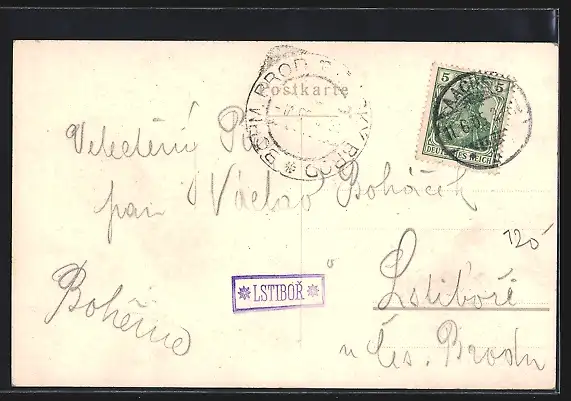 Postkarte
BÖHM. BROD ČESKÝ BROD
5 5
AACHEN
11.6.
DEUTSCHES REICH
Velectěný Pán
pan Václav Boháček
120
LSTIBOŘ
Lstiboři
Bohême
u Čes. Brodu